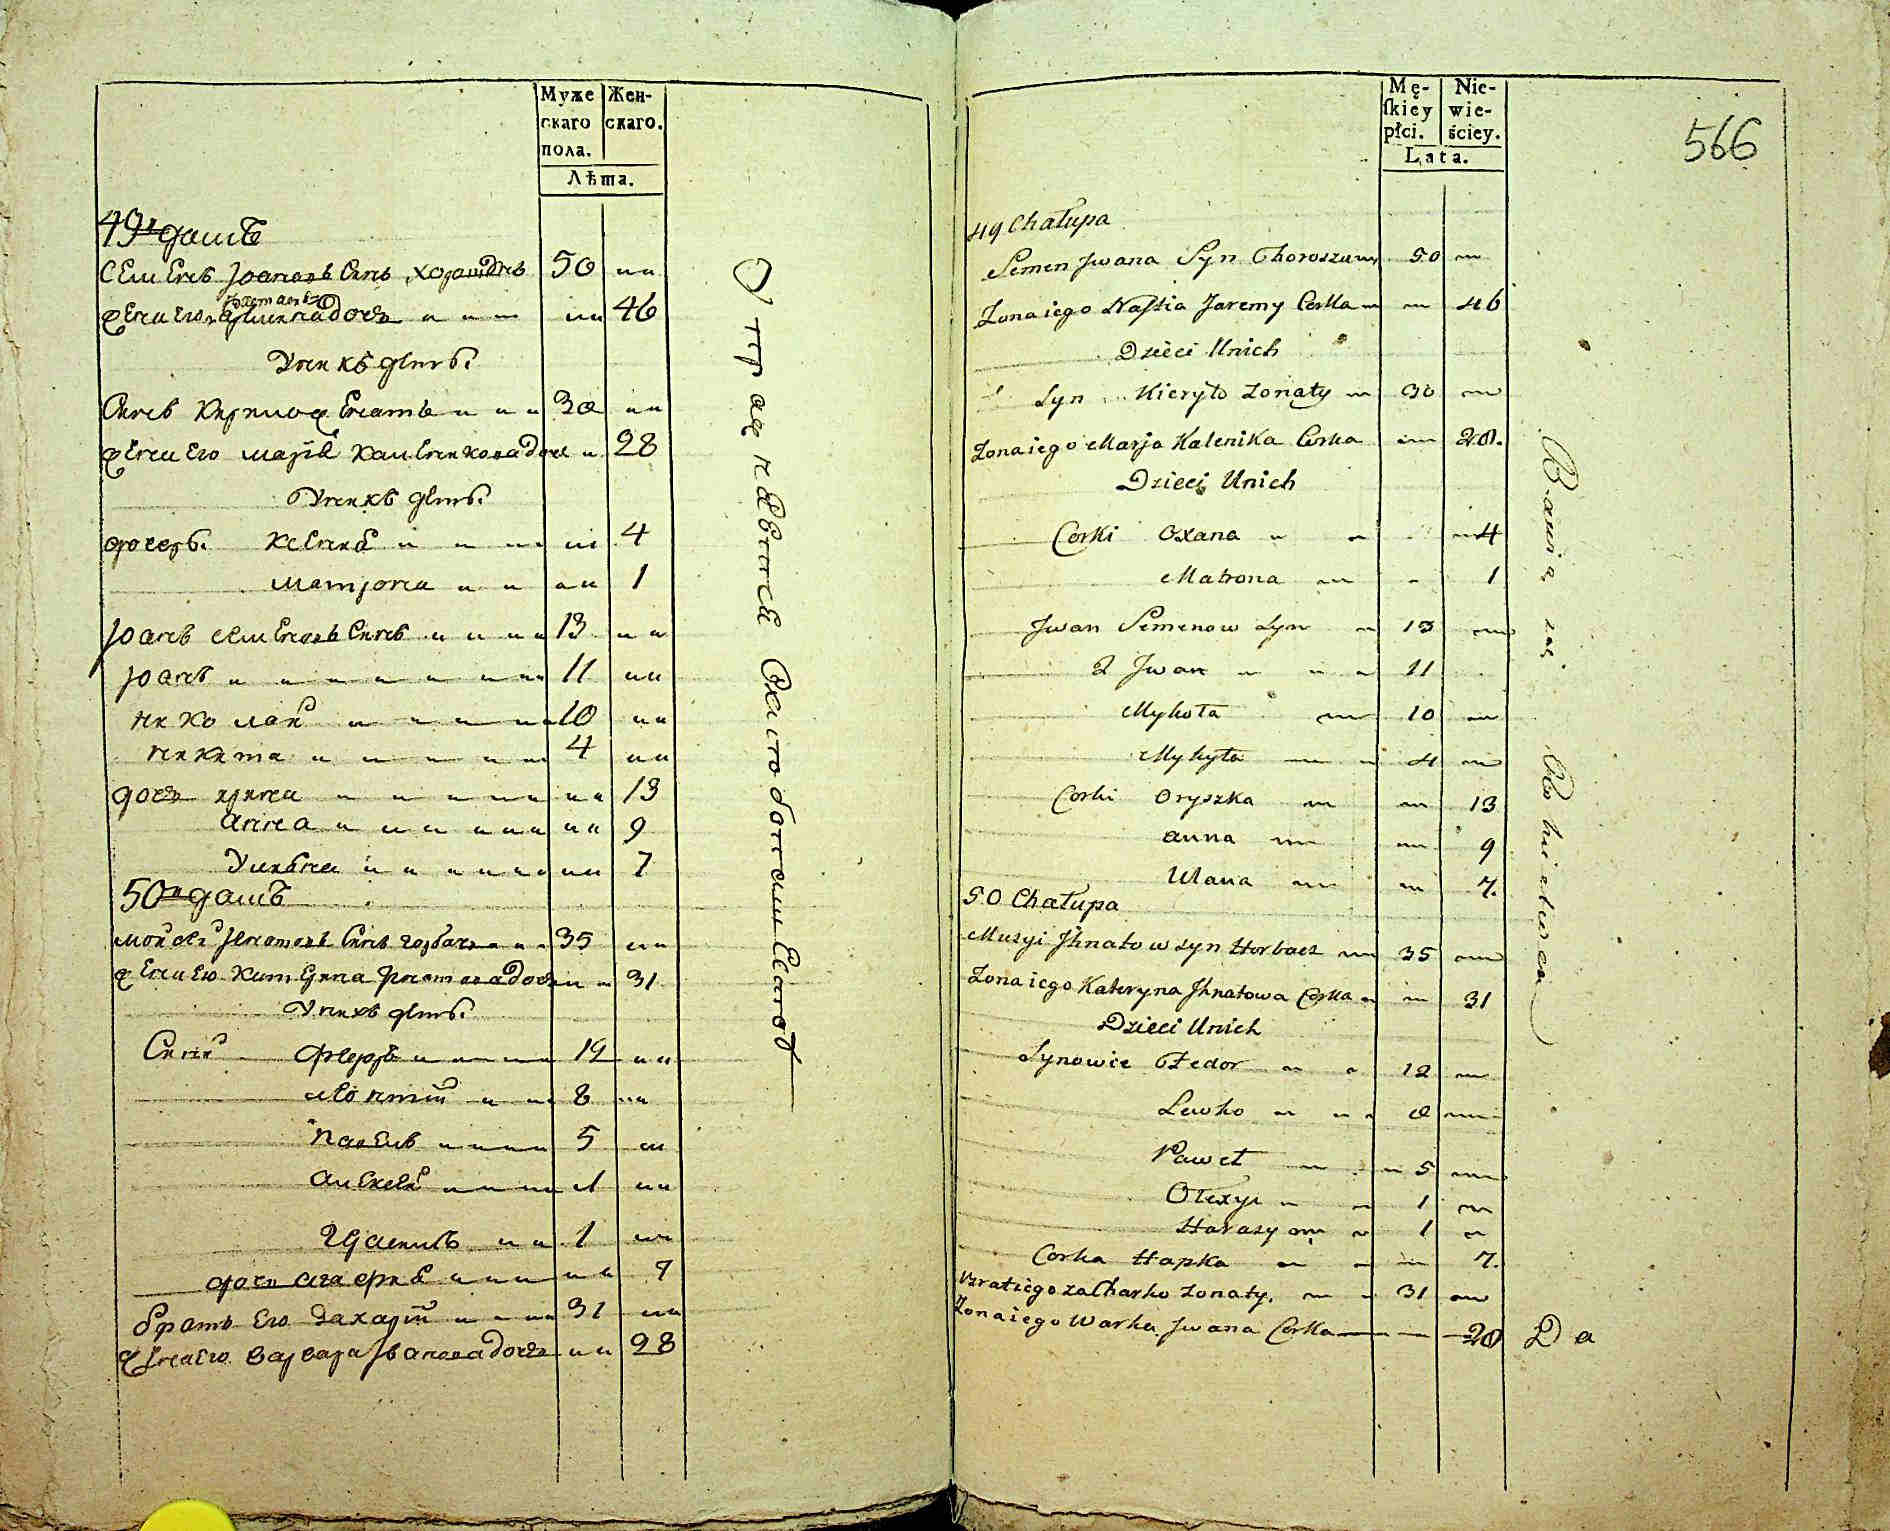 Муже
скаго
пола.
Жен-
скаго.
Лѣта.
49 домъ
Семенъ Іоановъ Синъ Хорошунъ 50
жена его дочь 46
У нихъ дети:
Синъ Кирило женатъ 30
жена его Марія Калениковадочь 28
У нихъ дети:
дочерь: Ксенія 4
Матрона 1
Іоанъ Семеновъ Синъ 13
Іоанъ 11
Николай 10
Никита 4
дочь Ирина 13
Анна 9
Улияна 7
50 домъ
Мойсей Игнатовъ Синъ горбачъ 35
жена его Катерина Игнатовадочь 31
У нихъ дети:
Сини Федоръ 12
Леонтій 8
Павелъ 5
Алексей 1
Герасимъ 1
дочь Агафия 7
братъ его Захарій 31
жена его Варвара Івановадочь 28
Mę-
skiey
płci.
Nie-
wie-
ściey.
Lata.
566
49 Chałupa
Semen Jwana Syn Choroszun 50
Zona iego Nastia Jaremy Corka 46
Dzieci Unich
Syn Kieryło Zonaty 30
Zona iego Marja Kalenika Corka 28.
Dzieci Unich
Corki Oxana 4
Matrona 1
Jwan Semenow Syn 13
2 Jwan 11
Mykoła 10
Mykyta 4
Corki Oryszka 13
Anna 9
Ulana 7.
50 Chałupa
Musyi Jhnatow syn Horbacz 35
Zona iego Kateryna Jhnatowa Corka 31
Dzieci Unich
Synowie Fedor 12
Lewko 8
Paweł 5
Olexyi 1
Harasym 1
Corka Hapka 7.
Brat iego Zacharko Zonaty. 31
Zona iego Warka Jwana Corka 28
Da